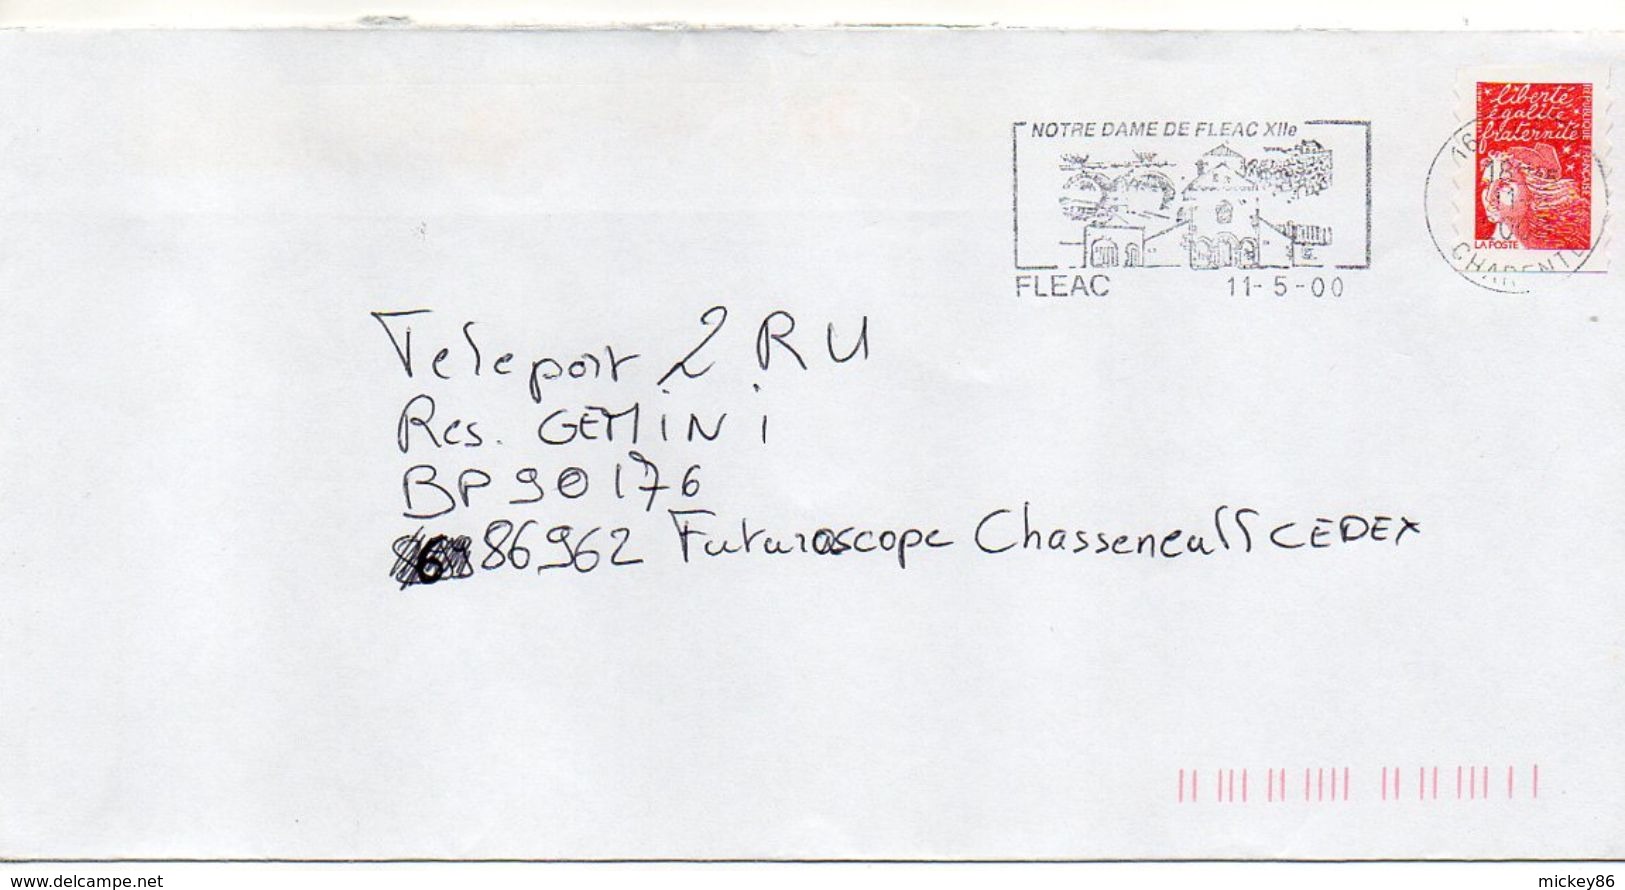 NOTRE DAME DE FLEAC XIIe
FLEAC 11-5-00
liberté
égalité
fraternité
RÉPUBLIQUE FRANÇAISE
LA POSTE
16
18
11
CHARENTE
Teleport 2 RU
Res. GEMINI
BP 90176
86962 Futuroscope Chasseneuil CEDEX
www.delcampe.net
mickey86